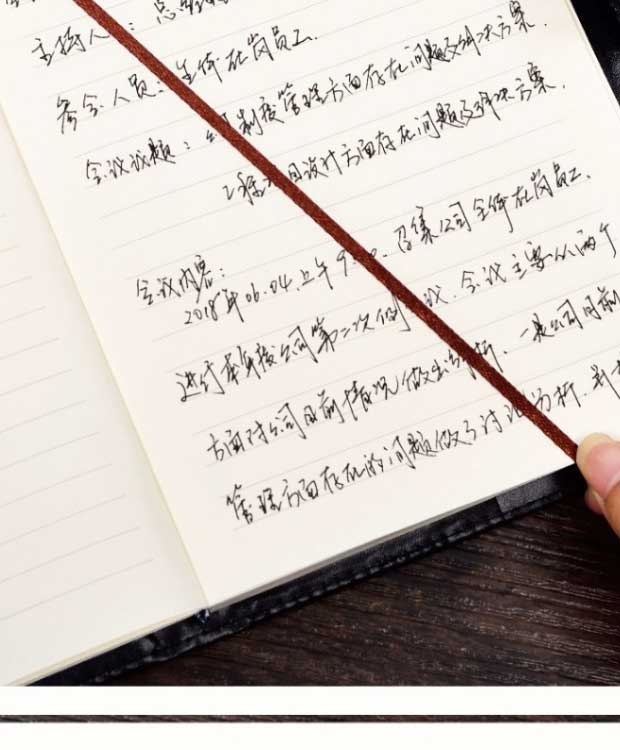 主持人：总经理
参会人员：全体在岗员工
会议议题：1、制度管理方面存在问题及解决方案.
2、程 项目设计方面存在问题及解决方案.
会议内容：
2018年06.04.上午9 召集公司全体在岗员工.
进行本年度公司第二次例 议. 会议主要从两个
方面对公司目前情况做出分析. 一是公司目前
管理方面存在的问题做了讨论分析.